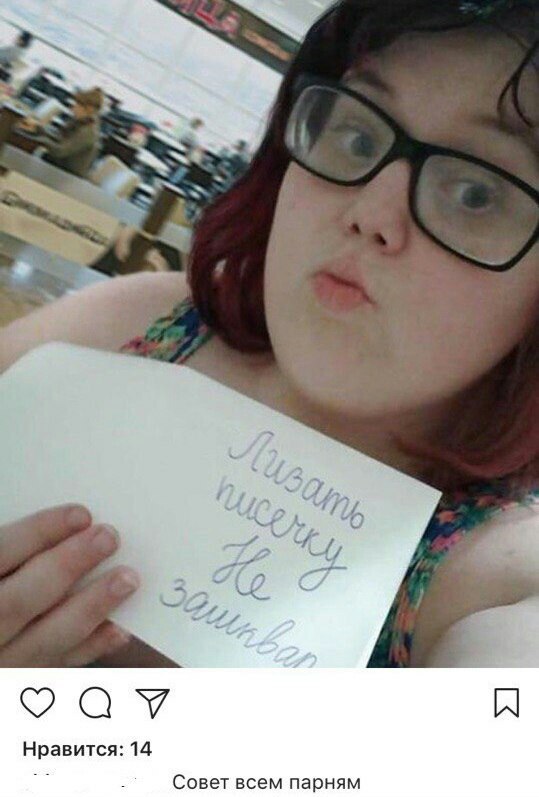 Лизать
писечку
Не
зашквар
Нравится: 14
Совет всем парням